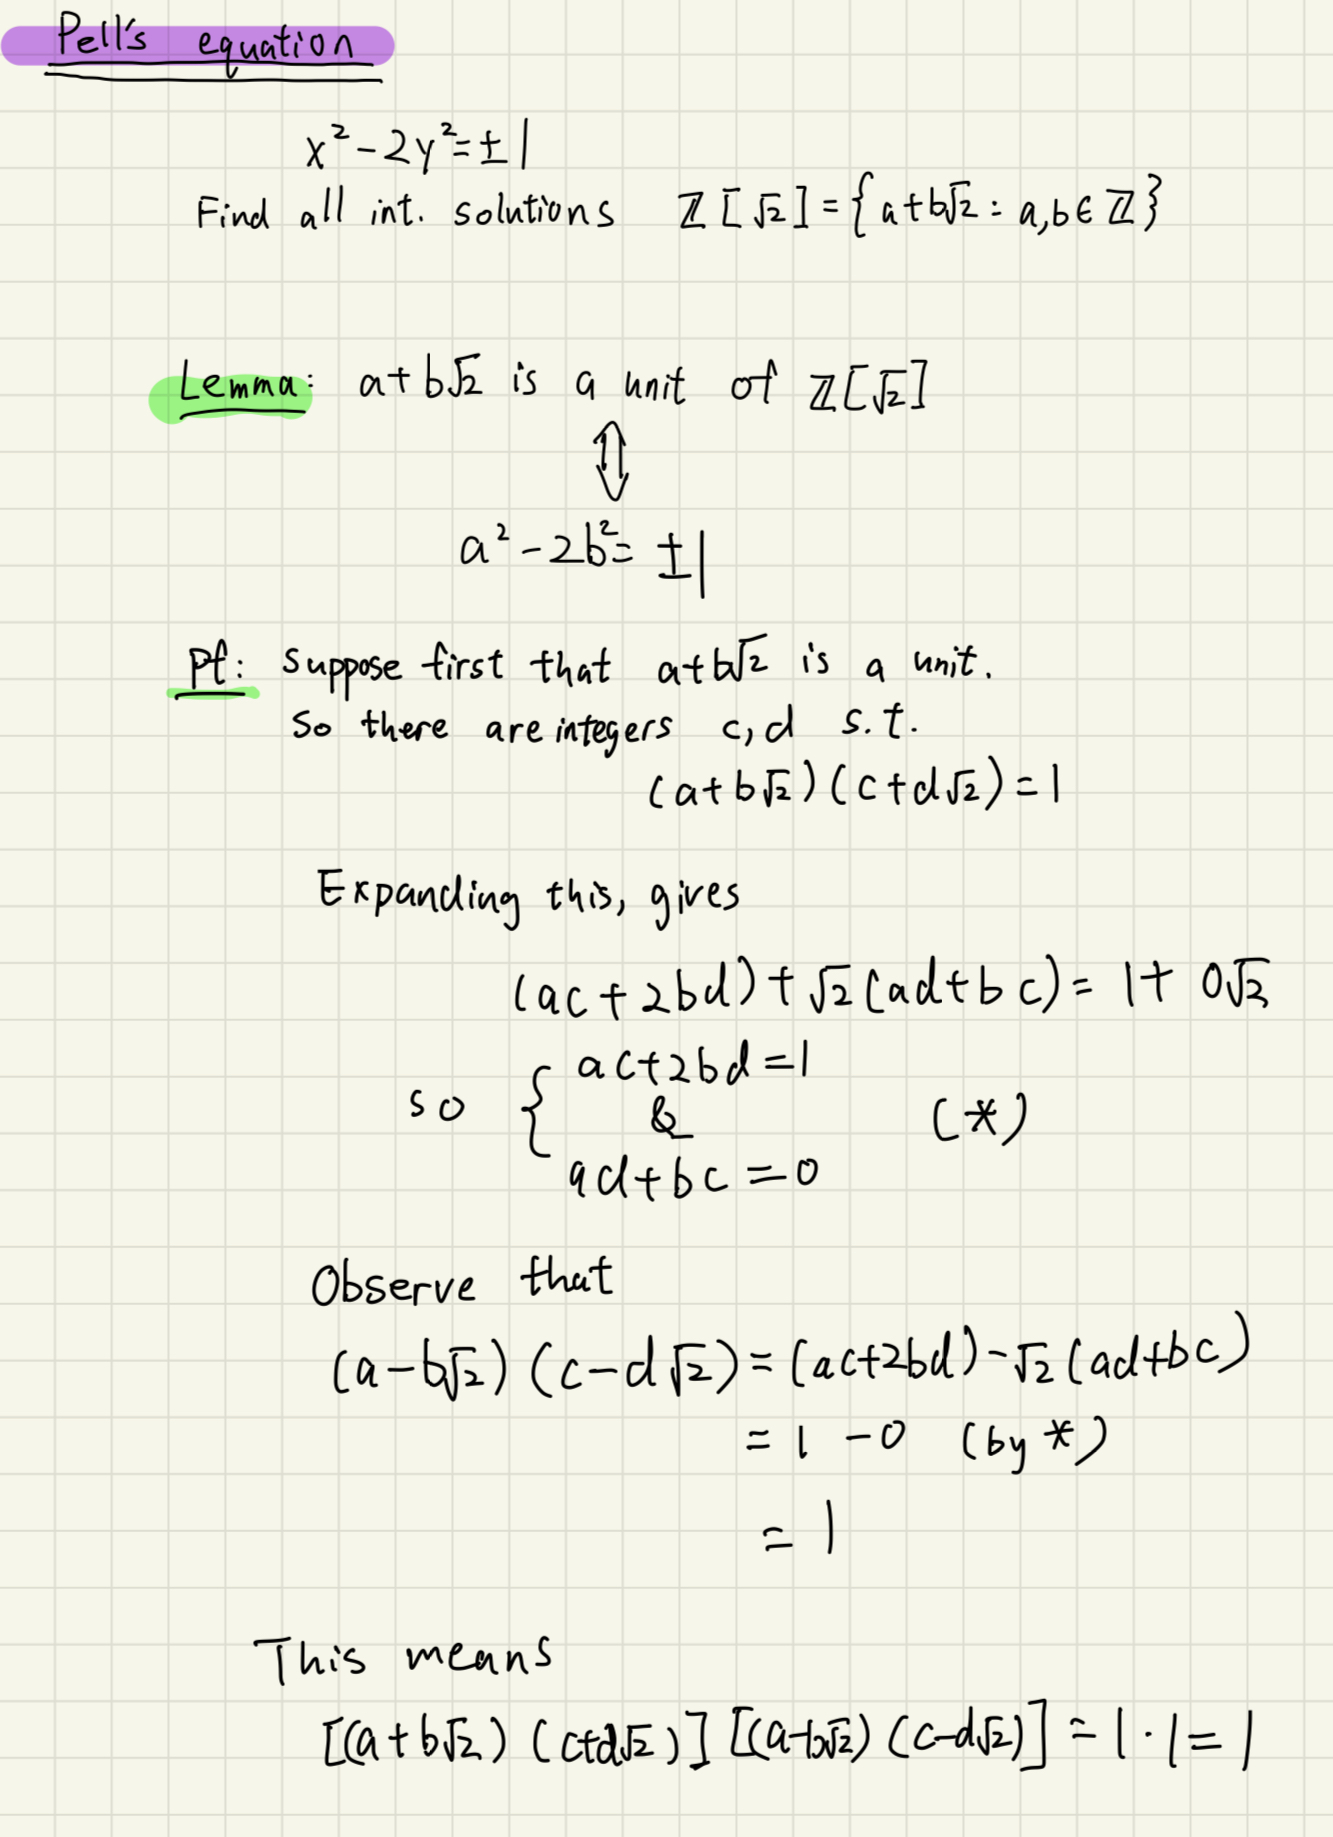 Pell's equation
x²-2y²=±1
Find all int. solutions ℤ[√2]={a+b√2 : a,b∈ℤ}
Lemma: a+b√2 is a unit of ℤ[√2]
⇕
a²-2b²=±1
Pf: Suppose first that a+b√2 is a unit.
So there are integers c,d s.t.
(a+b√2)(c+d√2)=1
Expanding this, gives
(ac+2bd)+√2(ad+bc)=1+0√2
so { ac+2bd=1
& (*)
ad+bc=0
Observe that
(a-b√2)(c-d√2)=(ac+2bd)-√2(ad+bc)
=1-0 (by *)
=1
This means
[(a+b√2)(c+d√2)][(a-b√2)(c-d√2)]=1·1=1